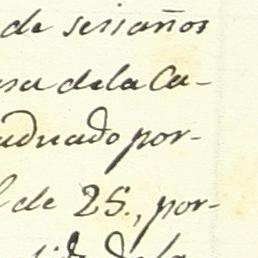 de seis años
sa de la Ca-
aduado por-
l de 25., por-
de la